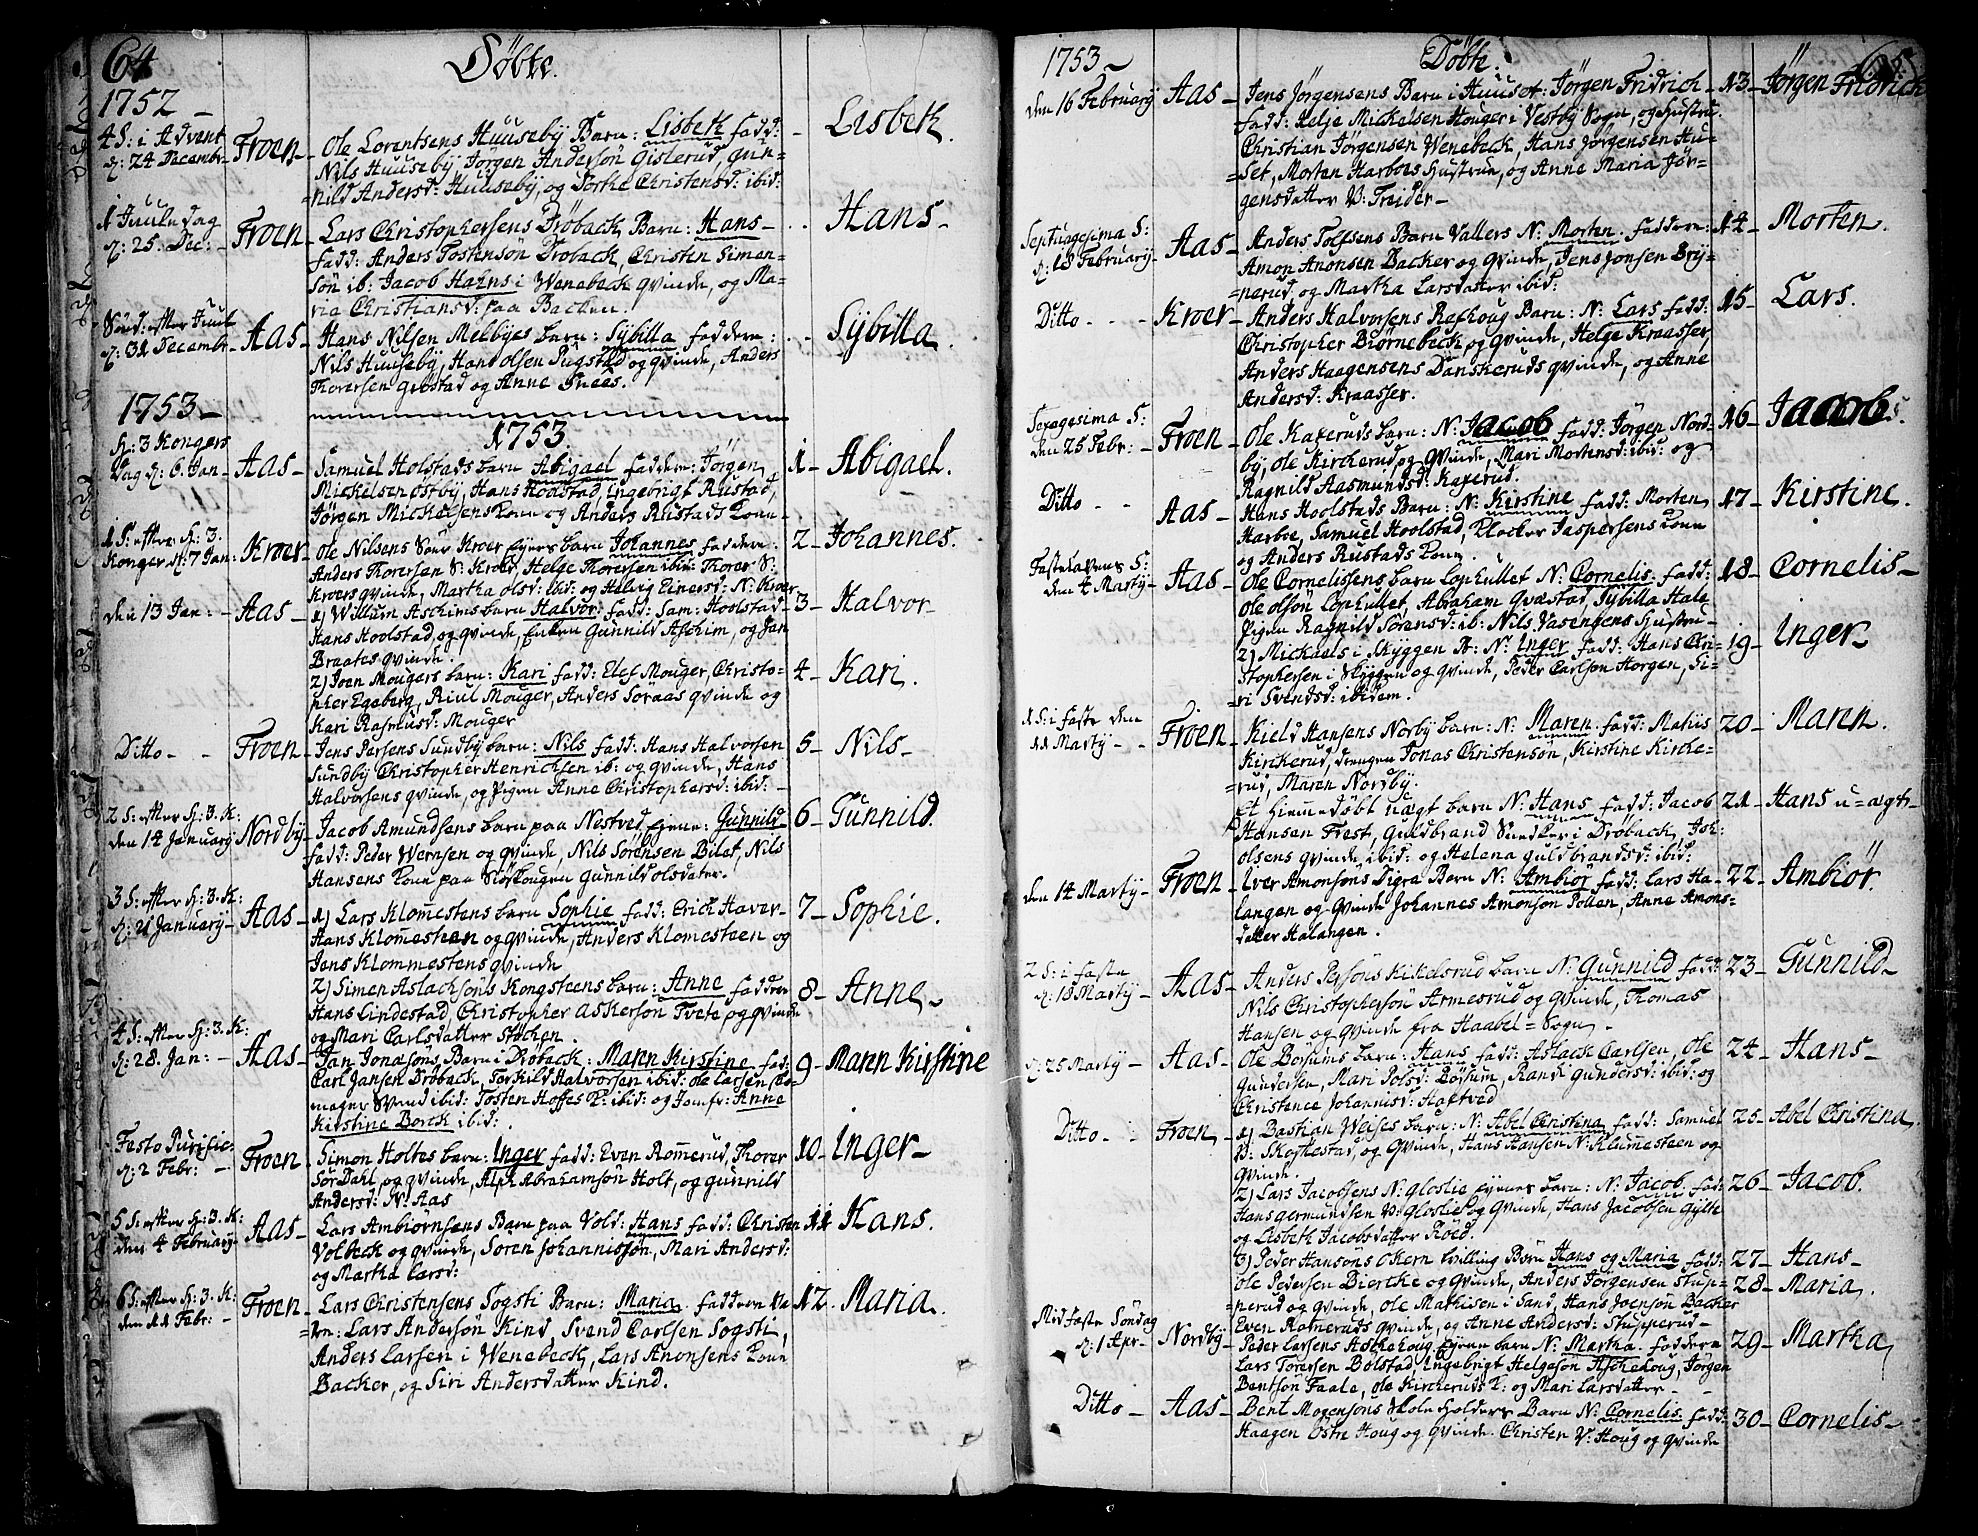 64
Döbte.
1752 –
4 S: i Advent
d: 24 Decembr
Froen –
Ole Lorentsens Huuseby Barn: Lisbeth fadd:
Nils Huuseby, Jörgen Andersön Gislerud, Gun=
=nild Andersd: Huuseby, og Dorthe Christensd: ibid:
Lisbeth.
1 Juule dag
d: 25. Dec: –
Froen –
Lars Christophersens Dröback Barn: Hans –
fadd: Anders Tostensön Dröback, Christen Simen=
sön ib: Jacob Hahns i Wenebeck qvinde, og Ma=
ria Christiansd: paa Backen.
Hans –
Sönd: efter Juul
d: 31 Decembr –
Aas –
Hans Nilsen Melbyes barn: Sybilla faddere:
Nils Huuseby, Hans Olsen Pugstad og qvinde, Anders
Thorersen Gröstad og Anne Snees.
Sybilla.
1753 –
H: 3 Kongers
Dag d: 6 Jan –
Aas –
1753
Samuel Holstads barn Abigael faddere: Jörgen
Mickelsen Östby, Hans Hoolstad, Ingebrigt Rustad,
Jörgen Mickelsens Kone og Anders Rustads Kone –
1 – Abigael.
1 S: efter H: 3.
Konger d: 7 Jan:
Kroer –
Ole Nilsens Sönr Kroer Eyers barn Johannes faddere:
Anders Thorersen S: Kroer, Helge Thorersen ibid: Thorer S:
Kroers qvinde, Martha Olsd: ibid: og Helvig Einersd: N: Kroer
2 – Johannes.
den 13 Jan: –
Aas –
1) Willum Aschims barn Halvor: fadd: Sam: Hoolstad –
Hans Hoolstad, og qvinde, Enken Gunnild Aschim, og Jan
Braates qvinde.
3 – Halvor –
2) Joen Mougers barn: Kari fadd: Elef Mouger, Christo=
pher Egeberg, Riul Mouger, Anders Soraas qvinde og
Kari Rasmusd: Mouger
4 – Kari.
Ditto – –
Froen –
Jens Persens Sundby barn: Nils fadd: Hans Halvorsen
Sundby Christopher Henrichsen ib: og qvinde, Hans
Halvorsens qvinde, og Pigen Anne Christophersd: ibid: –
5 – Nils –
2 S: efter H: 3. K:
den 14 January
Nordby –
Jacob Amundsens barn paa Nestved Eyene: Gunnild
fadd: Peder Wernsen og qvinde, Nils Sörensen Bilet, Nils
Hansens Kone paa Siöskougen Gunnild Olsdater.
6 – Gunnild.
3 S: efter H: 3. K:
d: 21 January –
Aas –
1) Lars Klomestens barn Sophie fadd: Erich Haver –
Hans Klomesteen og qvinde, Anders Klomesteen og
Jens Klommestens qvinde
7 – Sophie.
2) Simen Aslacksöns Kongsteens barn: Anne faddere
Hans Lindestad, Christopher Askersön Tvete, og qvinde
og Mari Carlsdatter Stöken.
8 – Anne –
4 S: efter H: 3. K:
d: 28. Jan: –
Aas –
Jan Jonasöns Barn i Dröback: Maren Kirstine fad:
Carl Jansen Dröback, Torkild Halvorsen ibid: Ole Larsen
mager Svend ibid: Tosten Hoffes K: ibid: og Jomfr: Anne
Kirstine Borck ibid: .
9 – Maren Kirstine
Festo Purific:
d: 2 Febr: –
Froen
Simon Holtes barn: Inger fadd: Even Romerud, Thorer
Sör Dahl, og qvinde, Alph Abrahamsön Holt, og Gunnild
Andersd: N: Aas
10 – Inger –
5 S: efter H: 3. K:
den 4 February
Aas –
Lars Ambiörnsens Barn paa Vold: Hans fadd: Christen
Volbeck og qvinde, Sören Johannissön, Mari Andersd:
og Martha Larsd:
11 Hans.
6 S: efter H: 3. K:
den 11 Febr: –
Froen –
Lars Christensens Sogsti Barn: Maria. faddere
Lars Andersön Kind, Svend Carlsen Sogsti,
Anders Larsen i Wenebeck, Lars Anonsens Kone
Backer, og Siri Andersdatter Kind.
12. Maria.
1753 –
Döbte.
65
den 16 February
Aas –
Jens Jörgensens Barn i Huuset: Jörgen Fridrich
fadd: Helje Mickelsen Houger i Vestby Sogn, og Hustru.
Christian Jörgensen Wenebeck, Hans Jörgensen Hu=
=set, Morten Harboes Hustrue, og Anne Maria Jör=
gensdatter V: Treider –
13 – Jörgen Fridrich
Septuagesima S:
d: 18 February –
Aas –
Anders Tolfsens Barn Vallers N: Morten. faddere:
Amon Anonsen Backer og qvinde, Jens Jonsen Bry=
=nerud, og Martha Larsdatter ibid:
14 – Morten.
Ditto – – –
Kroer –
Anders Halvorsens Rafhoug Barn: N: Lars fadd:
Christopher Biörnebeck, og qvinde, Helge Kraasser,
Anders Haagensens Danskeruds qvinde, og Anne
Andersd: Kraasser.
15 – Lars.
Sexagesima S:
den 25 Febr: –
Froen –
Ole Kaxeruds barn: N: Jacob fadd: Jörgen Nord=
by, Ole Kirckerud, og Qvinde, Mari Mortensd: ibid: og
Ragnild Aasmundsd: Kaxerud.
16 – Jacob.
Ditto – –
Aas –
Hans Hoolstads Barn: N: Kirstine fadd: Morten
Harboe, Samuel Hoolstad, Klocker Jaspersens Kone
og Anders Rustads Kone.
17 – Kirstine.
Fastelavens S:
den 4 Marty –
Aas –
Ole Cornelissens barn Lophullet N: Cornelis. fadd:
Ole Olsön Lophullet, Abraham Qvæstad, Sybilla Hale
Pigen Ragnild Sörensd: ib: Nils Vasengens Hustru –
18 – Cornelis –
2) Mickaels i Skyggen B: N: Inger fadd: Hans Cri=
stophersen i Skyggen og qvinde, Peder Carlsön Horgen, Si=
=ri Svendsd: ibidem.
19 – Inger –
1 S: i Faste den
11 Marty – –
Froen –
Kield Hansens Norby barn: N: Maren. fadd: Mathis
Kirckerud, drengen Jonas Christensön, Kirstine Kircke=
=rud, Maren Nordby.
20 – Maren.
Et Hiemmedöbt uægt barn N: Hans fadd: Jacob
Hansen Frest, Guldbrand Snedker i Dröback, Joh:
Olsens qvinde, ibid: og Helena Guldbrandsd: ibid:
21 – Hans u=ægte
den 14 Marty –
Froen –
Iver Amonsöns Digra Barn N: Ambiör fadd: Lars Ha=
langen og Qvinde Johannes Amonsön Pollen, Anne Amons=
datter Halangen.
22 – Ambiör.
2 S: i Faste
d: 18 Marty –
Aas –
Anders Persöns Kikelsrud barn N: Gunnild fadd:
Nils Christophersön Armesrud og qvinde, Thomas
Hansen og qvinde fra Haabel=Sogn –
23 – Gunnild –
d: 25 Marty –
Aas –
Ole Bosums barn: Hans fadd: Aslack Carlsen, Ole
Gundersen, Mari Polsd: Börsum, Randi Gundersd: ibid: og
Christence Johannisd: Hoftved
24 – Hans –
Ditto – –
Froen –
1) Bastian Weises barn: N: Abel Christina fadd: Samuel
V: Skoftestad, og Qvinde, Hans Hansen N: Klumesteen og
qvinde.
25 – Abel Christina.
2) Lars Jacobsens N: Gloslie Eyenes barn: N: Jacob. fad:
Hans Germundsen V: Gloslie, og Qvinde, Hans Jacobsen Gylte
og Lisbeth Jacobsdatter Röed.
26 – Jacob.
3) Peder Hansöns Okern tvilling Börn Hans og Maria fadd:
Ole Pedersen Biercke og qvinde, Anders Jörgensen Stup=
=perud og qvinde, Ole Mathisen i Sand, Hans Joensön Backer
Even Romeruds qvinde, og Anne Andersd: Stupperud –
27 – Hans –
28 – Maria.
Mid Faste Söndag
d: 1 Apr –
Nordby –
Peder Larsens Askehoug Eyene barn N: Martha. faddere
Lars Torersen Bölstad, Ingebrigt Helgesön Askehoug, Jörgen
Bentsön Faale, Ole Kirckeruds K: og Mari Larsdatter –
29 – Martha
Ditto –
Aas –
Bent Mogensöns Skoleholders Barn N: Cornelis. fadd:
Haagen Östre Houg og qvinde. Christen V: Houg og qvinde
30 – Cornelis –